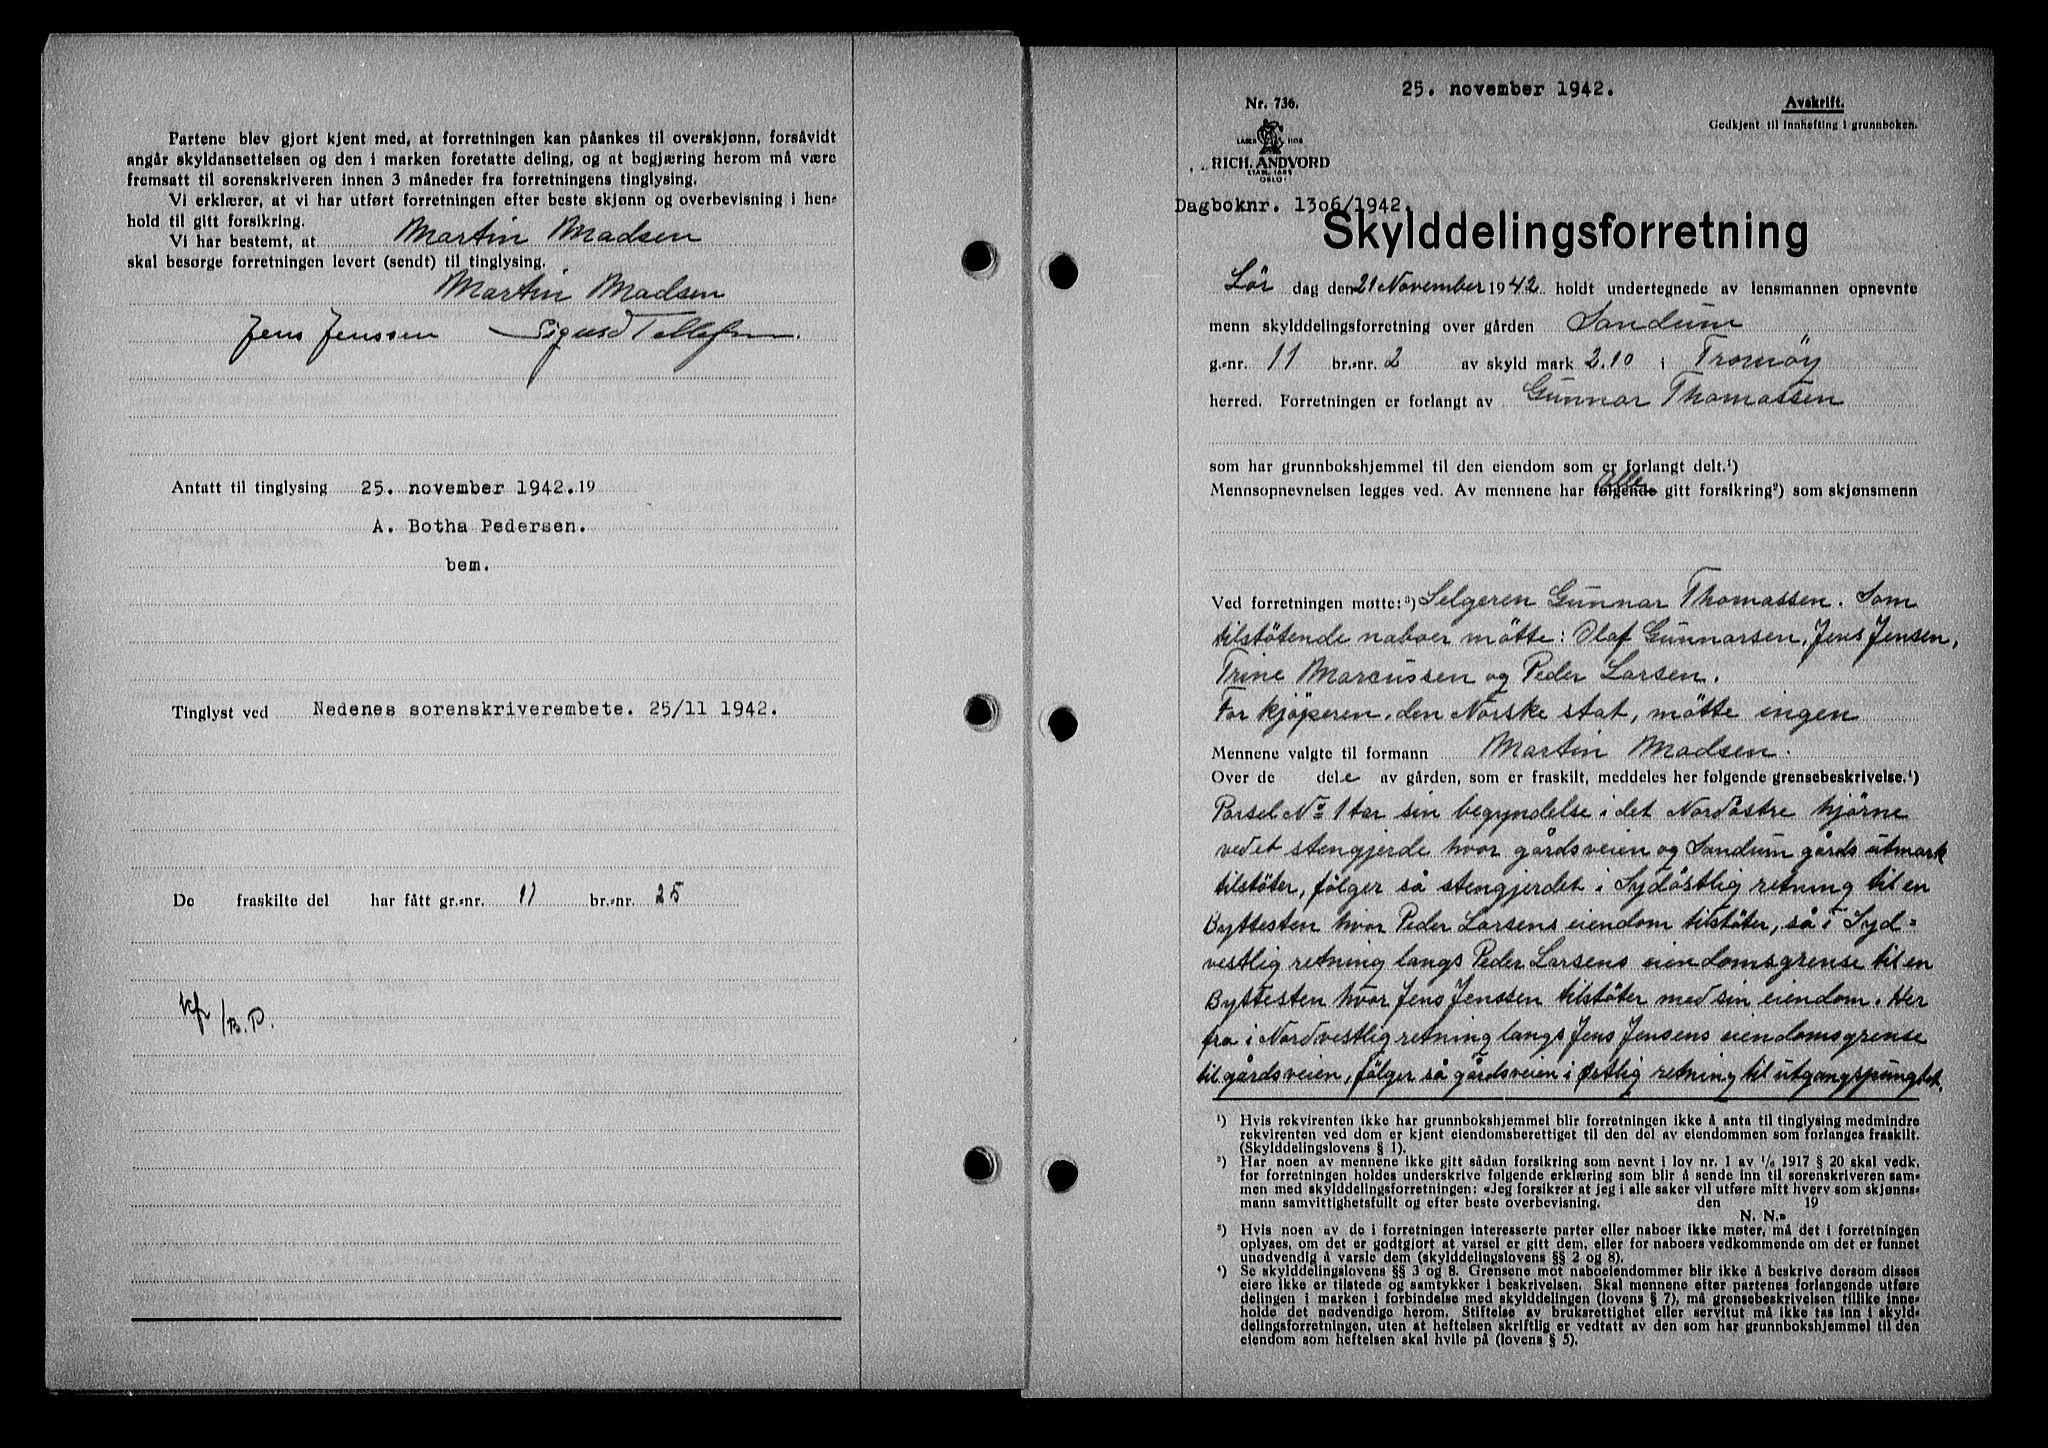 Partene blev gjort kjent med, at forretningen kan påankes til overskjønn, forsåvidt
angår skyldansettelsen og den i marken foretatte deling, og at begjæring herom må være
fremsatt til sorenskriveren innen 3 måneder fra forretningens tinglysing.
Vi erklærer, at vi har utført forretningen efter beste skjønn og overbevisning i hen-
hold til gitt forsikring.
Vi har bestemt, at Martin Madsen
skal besørge forretningen levert (sendt) til tinglysing.
Martin Madsen
Jens Jenssen Sigurd Tellefsen
Antatt til tinglysing 25. november 1942. 19
A. Botha Pedersen.
bem.
Tinglyst ved Nedenes sorenskriverembete. 25/11 1942.
De fraskilte del har fått gr.-nr. 11 br.-nr. 25
Kfr /B.P.
25. november 1942.
Nr. 736.
Avskrift.
Godkjent til innhefting i grunnboken.
LAGER HOS
RICH. ANDVORD
ETABL. 1865
OSLO
Dagboknr. 1306/1942.
Skylddelingsforretning
Lör dag den 21 November 1942 holdt undertegnede av lensmannen opnevnte
menn skylddelingsforretning over gården Sandum
g.-nr. 11 br.-nr. 2 av skyld mark 2.10 i Tromöy
herred. Forretningen er forlangt av Gunnar Thomassen
som har grunnbokshjemmel til den eiendom som er forlangt delt.¹)
Alle
Mennsopnevnelsen legges ved. Av mennene har følgende gitt forsikring²) som skjønsmenn
Ved forretningen møtte:³) Selgeren Gunnar Thomassen. Som
tilstötende naboer mötte: Olaf Gunnarsen, Jens Jensen,
Trine Marcussen og Peder Larsen.
For kjöperen, den Norske stat, mötte ingen
Mennene valgte til formann Martin Madsen.
Over de dele av gården, som er fraskilt, meddeles her følgende grensebeskrivelse.⁴)
Parsel No 1 tar sin begyndelse i det Nordöstre hjörne
ved et stengjerde hvor gårdsveien og Sandum gårds utmark
tilstöter, fölger så stengjerdet i Sydöstlig retning til en
Byttesten hvor Peder Larsens eiendom tilstöter, så i Syd-
vestlig retning langs Peder Larsens eiendomsgrense til en
Byttesten hvor Jens Jenssen tilstöter med sin eiendom. Her
fra i Nordvestlig retning langs Jens Jensens eiendomsgrense
til gårdsveien, fölger så gårdsveien i østlig retning til utgangspungtet.
¹) Hvis rekvirenten ikke har grunnbokshjemmel blir forretningen ikke å anta til tinglysing medmindre
rekvirenten ved dom er kjent eiendomsberettiget til den del av eiendommen som forlanges fraskilt.
(Skylddelingslovens § 1).
²) Har noen av mennene ikke gitt sådan forsikring som nevnt i lov nr. 1 av ¹/₆ 1917 § 20 skal vedk.
før forretningen holdes underskrive følgende erklæring som blir å sende inn til sorenskriveren sam-
men med skylddelingsforretningen: «Jeg forsikrer at jeg i alle saker vil utføre mitt hverv som skjønns-
mann samvittighetsfullt og efter beste overbevisning. den 19
N. N.»
³) Hvis noen av de i forretningen interesserte parter eller naboer ikke møter, må det i forretningen
oplyses, om det er godtgjort at varsel er gitt dem, eller for naboers vedkommende om det er funnet
unødvendig å varsle dem (skylddelingslovens §§ 2 og 8).
⁴) Se skylddelingslovens §§ 3 og 8. Grensene mot naboeiendommer blir ikke å beskrive dersom disses
eiere ikke er tilstede og samtykker i beskrivelsen. Skal mennene efter partenes forlangende utføre
delingen i marken i forbindelse med skylddelingen (lovens § 7), må grensebeskrivelsen tillike inne-
holde det nødvendige herom. Stiftelse av bruksrettighet eller servitut må ikke tas inn i skyld-
delingsforretningen, uten at heftelsen skriftlig er vedtatt av den som har grunnbokshjemmel til den
eiendom som heftelsen skal hvile på (lovens § 5).